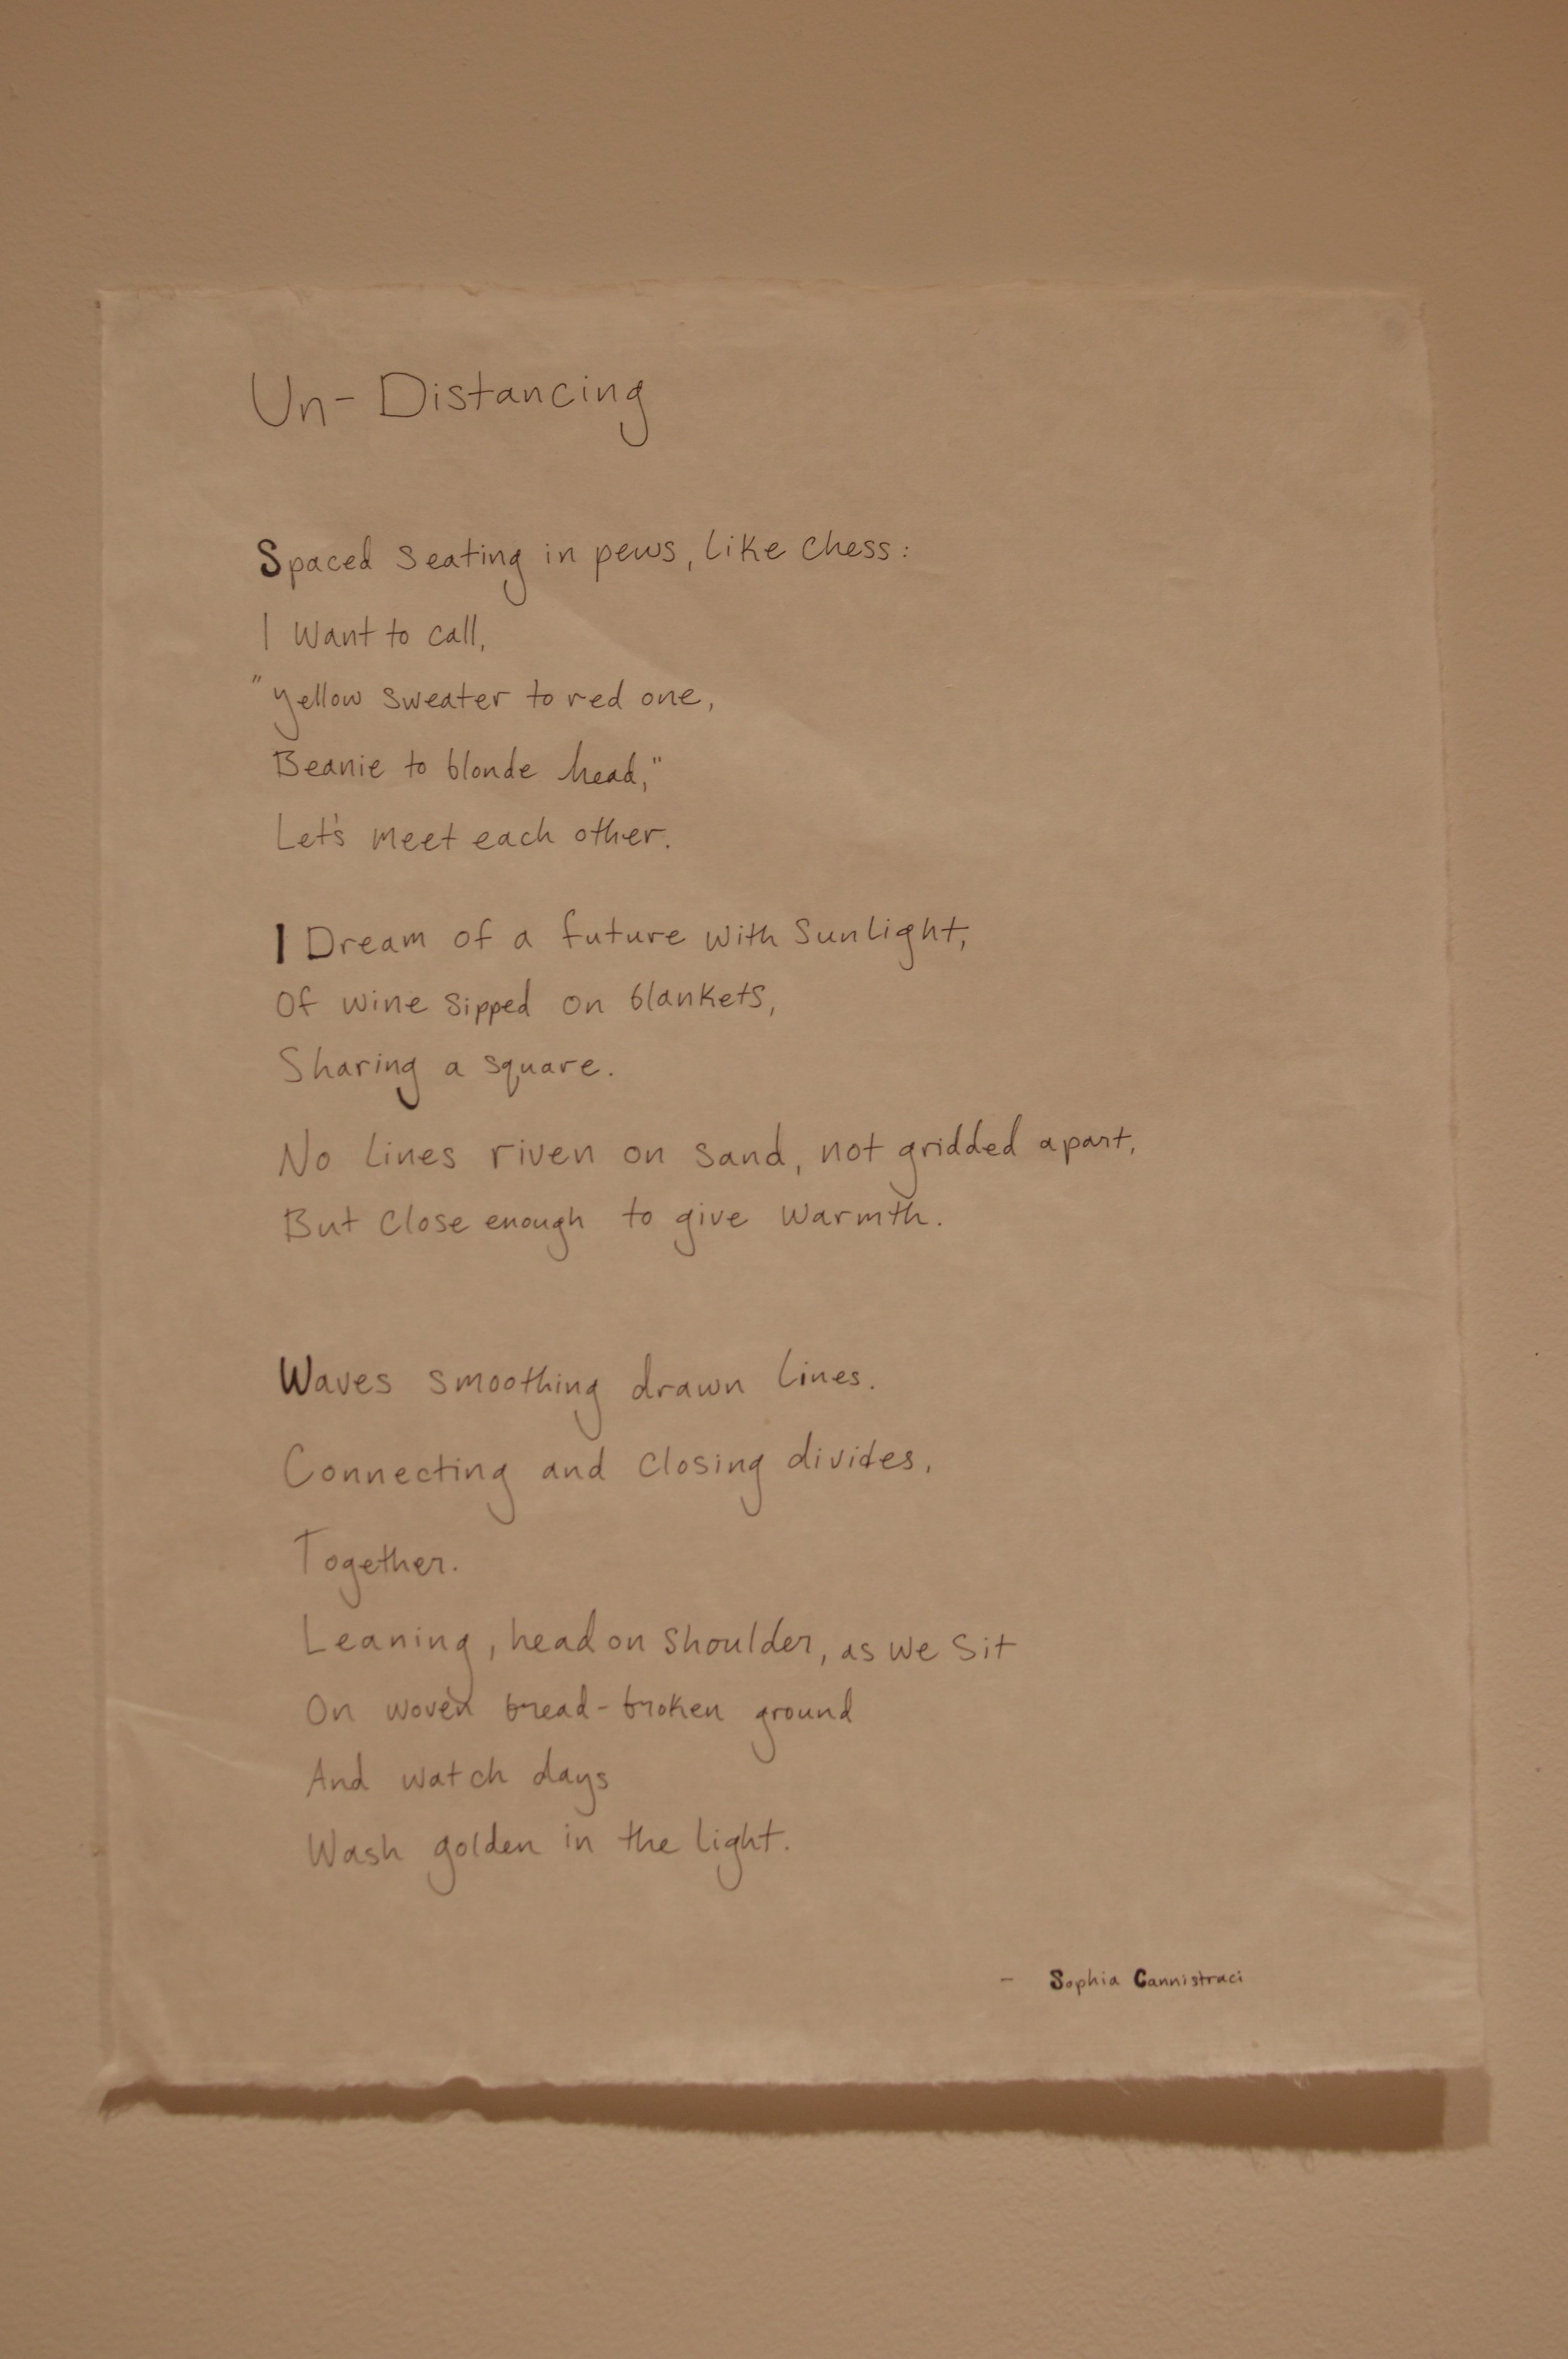 Un-Distancing
Spaced seating in pews, like chess:
I want to call,
"Yellow sweater to red one,
Beanie to blonde head,"
Let's meet each other.
I Dream of a future with sunlight,
Of wine sipped on blankets,
Sharing a square.
No lines riven on sand, not gridded apart,
But close enough to give warmth.
Waves smoothing drawn lines.
Connecting and closing divides,
Together.
Leaning, head on shoulder, as we sit
On woven bread-broken ground
And watch days
Wash golden in the light.
- Sophia Cannistraci